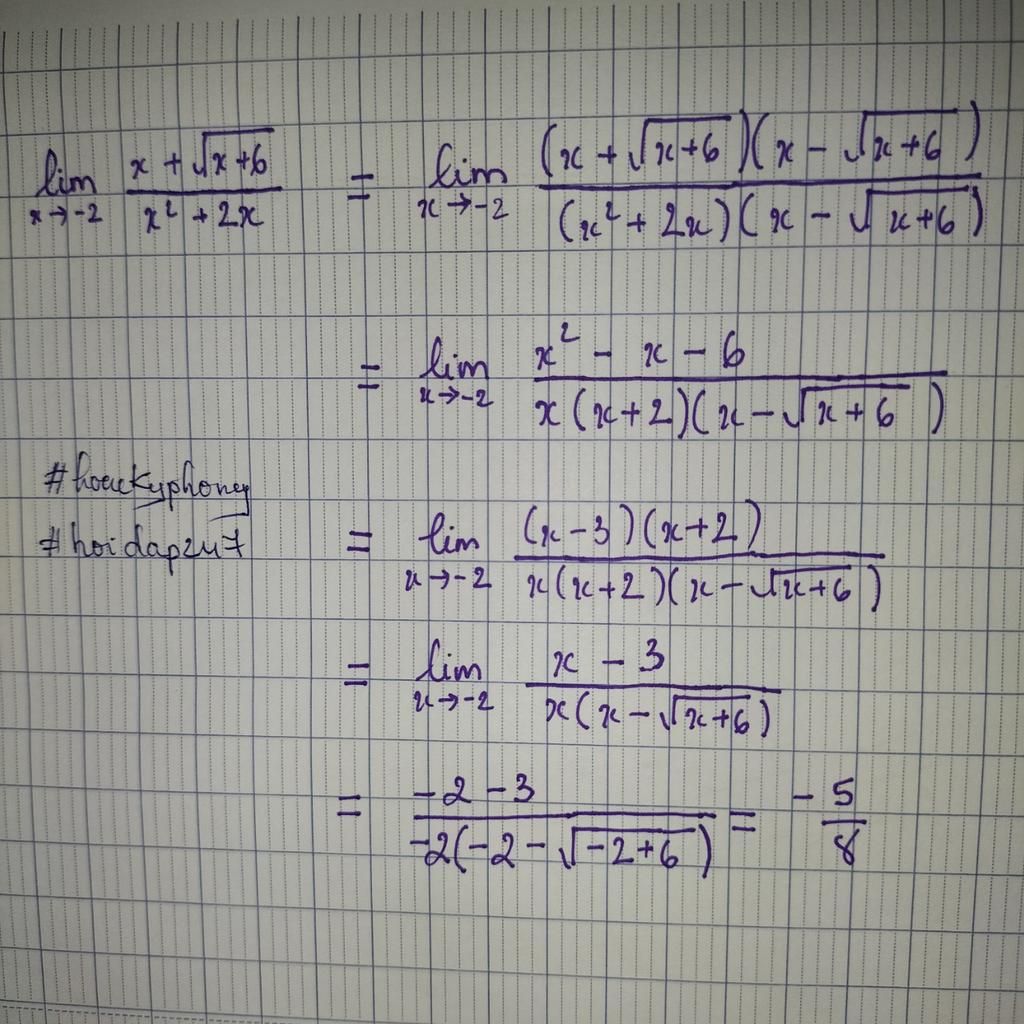 lim x→-2 (x + √(x+6))/(x² + 2x) = lim x→-2 ((x + √(x+6))(x - √(x+6)))/((x² + 2x)(x - √(x+6)))
= lim x→-2 (x² - x - 6)/(x(x+2)(x - √(x+6)))
#hoidap247
= lim x→-2 ((x-3)(x+2))/(x(x+2)(x - √(x+6)))
= lim x→-2 (x - 3)/(x(x - √(x+6)))
= (-2 - 3)/(-2(-2 - √(-2+6))) = -5/8